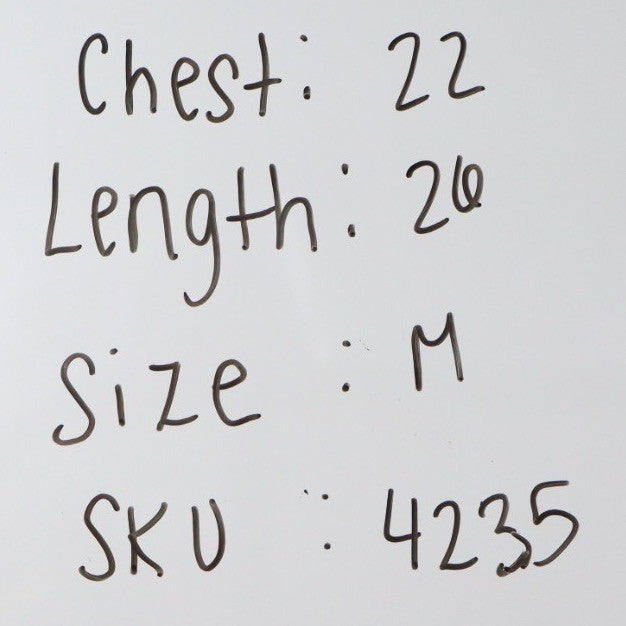 Chest: 22
Length: 26
Size : M
SKU : 4235